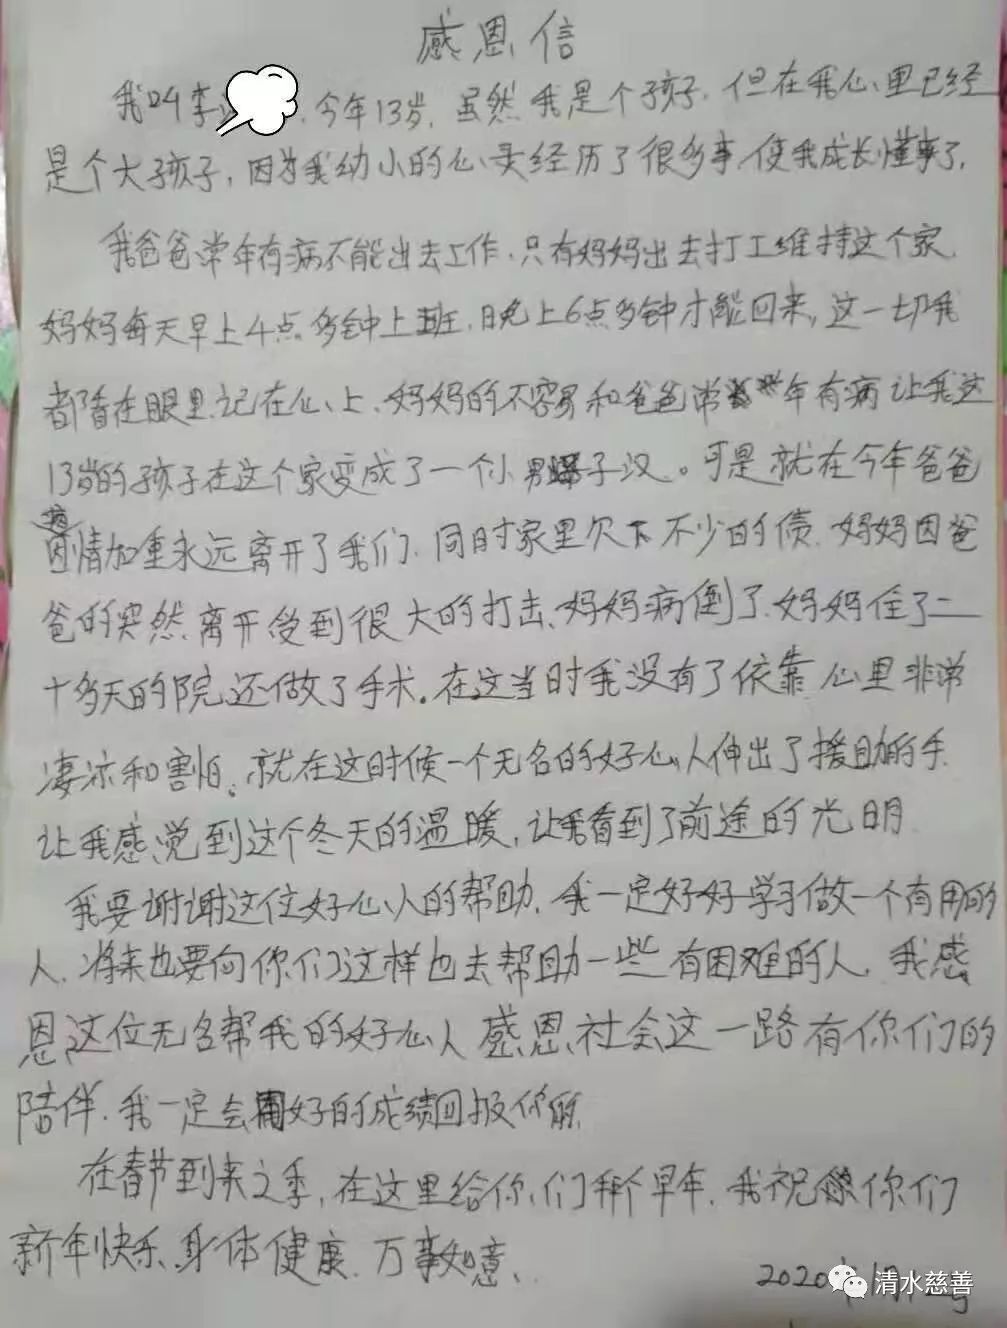 感恩信
我叫李 今年13岁，虽然我是个孩子，但在我心里已经
是个大孩子，因为我幼小的心灵经历了很多事，使我成长懂事了，
我爸爸常年有病不能出去工作，只有妈妈出去打工维持这个家，
妈妈每天早上4点多钟上班，晚上6点多钟才能回来，这一切我
都看在眼里，记在心上、妈妈的不容易和爸爸常年有病让我这
13岁的孩子在这个家变成了一个小男子汉。可是就在今年爸爸
病情加重永远离开了我们，同时家里欠下不少的债，妈妈因爸
爸的突然离开受到很大的打击、妈妈病倒了，妈妈住了二
十多天的院还做了手术。在这当时我没有了依靠 心里非常
凄凉和害怕。就在这时候一个无名的好心人伸出了援助的手，
让我感觉到这个冬天的温暖，让我看到了前途的光明
我要谢谢这位好心人的帮助，我一定好好学习做一个有用的
人，将来也要向你们这样也去帮助一些有困难的人，我感
恩这位无名帮我的好心人 感恩社会这一路有你们的
陪伴，我一定会用好的成绩回报你们
在春节到来之季，在这里给你们拜个早年，我祝你们
新年快乐、身体健康，万事如意、
2020年1月
清水慈善